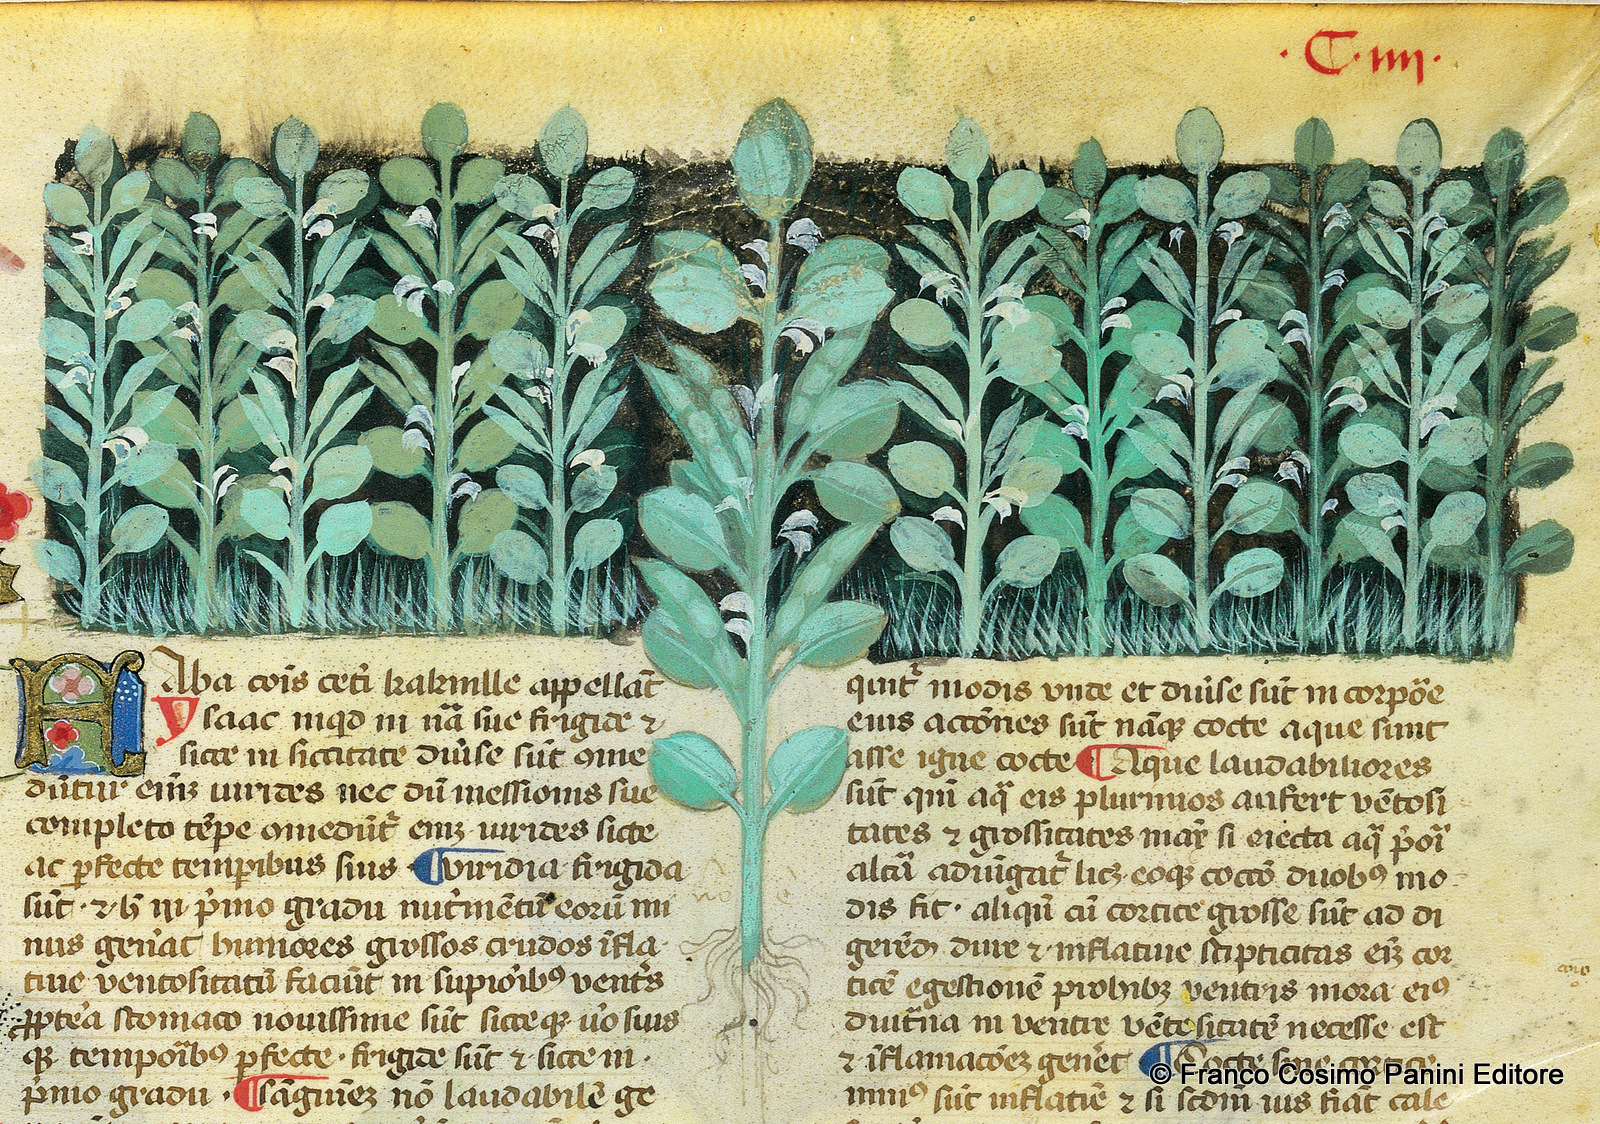 · C · iiij ·
Aba cōis ceti kakinlle appellāt
ysaac inqd in nā sue frigide ⁊
sicce in siccitate diuise sūt ome
dūtur eniꝫ uirides nec dū messionis sue
completo tēpe omedūt eniꝫ uirides sicce
ac pfecte temporibus suis ¶ viridia frigida
sūt · ⁊ h in pmo gradu nutmētū eorū mi
nus genāt humores grossos crudos īfla
tiue ventositatū faciūt in supioibꝰ ventis
stomaco nouissime sūt sicce qꝫ uo suis
qꝫ tempoibꝰ pfecte · frigide sūt ⁊ sicce in ·
pmo gradu · ¶ sāguineꝫ nō laudabilē ge
quit modis vnde et diuise sūt in corpoe
eius actiōnes sūt nāqꝫ cocte aque sunt
asse igne cocte ¶ Aque laudabiliores
sūt qm aq eis plurimos aufert vētosi
tates ⁊ grossitates max si eiecta aq poi
altā adiūgat licꝫ eoqꝫ coctō duobꝰ mo
dis fit · aliqn cū cortice grosse sūt ad di
gerēdꝫ dure ⁊ inflatiue stipticitas eiꝫ cor
ticē egestionē prohibꝫ ventris mora eiꝰ
diutna in ventre vētositatē necesse est
⁊ īflamacōeꝫ genēt ¶ Cocte sine cortice
minꝰ sūt inflatiē ⁊ si scdm ius fiāt cale
© Franco Cosimo Panini Editore